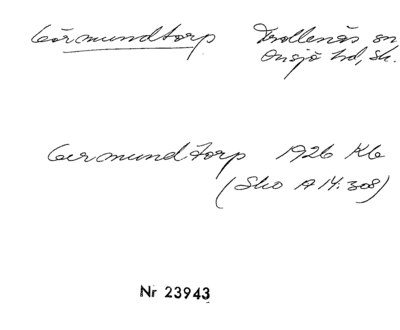 Görmundtorp Trollenäs sn
Onsjö hd, Sk.
Germundtorp 1926 Kb
(Sko A 14:308)
Nr 23943